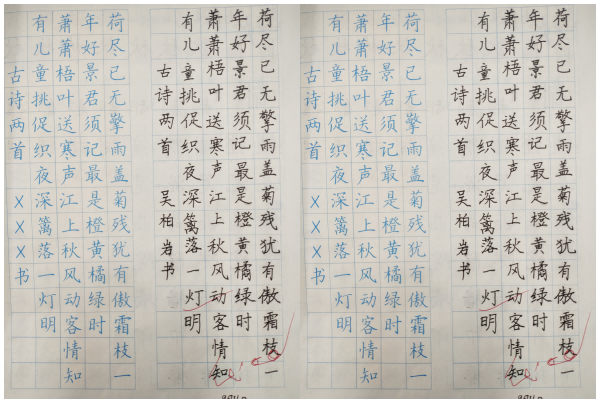 荷尽已无擎雨盖菊残犹有傲霜枝一
年好景君须记最是橙黄橘绿时
萧萧梧叶送寒声江上秋风动客情知
有儿童挑促织夜深篱落一灯明
古诗两首 吴柏岩书
荷尽已无擎雨盖菊残犹有傲霜枝一
年好景君须记最是橙黄橘绿时
萧萧梧叶送寒声江上秋风动客情知
有儿童挑促织夜深篱落一灯明
古诗两首 XXX书
荷尽已无擎雨盖菊残犹有傲霜枝一
年好景君须记最是橙黄橘绿时
萧萧梧叶送寒声江上秋风动客情知
有儿童挑促织夜深篱落一灯明
古诗两首 吴柏岩书
荷尽已无擎雨盖菊残犹有傲霜枝一
年好景君须记最是橙黄橘绿时
萧萧梧叶送寒声江上秋风动客情知
有儿童挑促织夜深篱落一灯明
古诗两首 XXX书